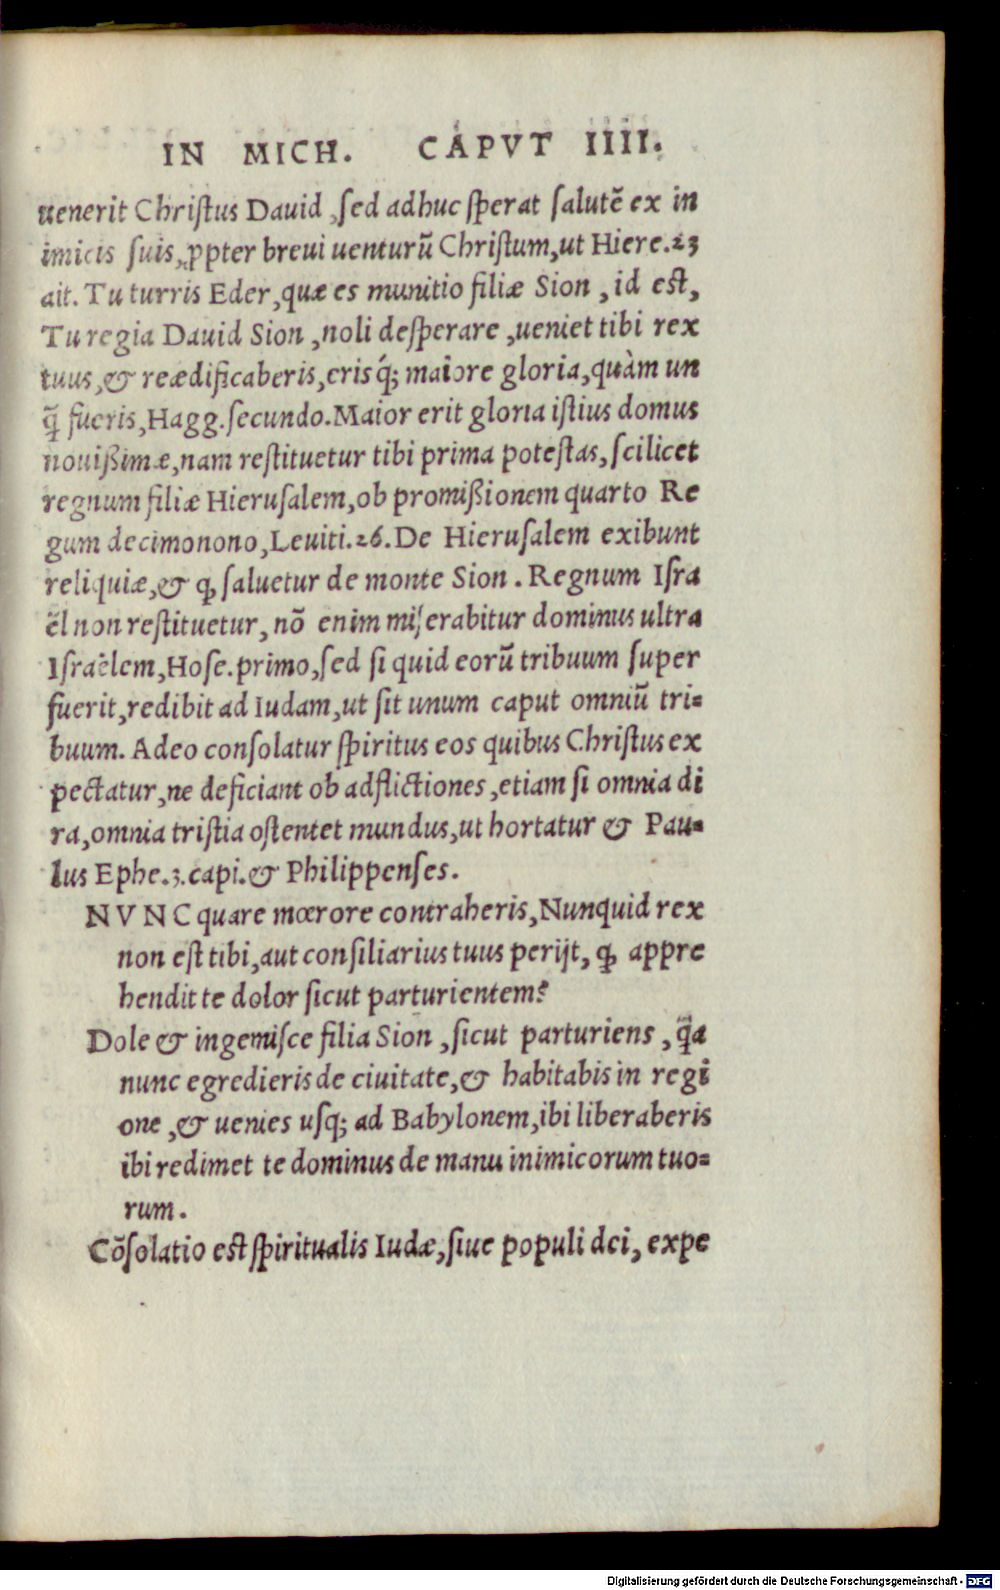 IN MICH. CAPVT IIII.
uenerit Christus Dauid, sed adhuc sperat salutē ex in
imicis suis, ꝓpter breui uenturū Christum, ut Hiere.23
ait. Tu turris Eder, quæ es munitio filiæ Sion, id est,
Tu regia Dauid Sion, noli desperare, ueniet tibi rex
tuus, & reædificaberis, erisq́; maiore gloria, quàm un
q̄ fueris, Hagg. secundo. Maior erit gloria istius domus
nouißimæ, nam restituetur tibi prima potestas, scilicet
regnum filiæ Hierusalem, ob promißionem quarto Re
gum decimonono, Leuiti.26. De Hierusalem exibunt
reliquiæ, & ꝙ saluetur de monte Sion. Regnum Isra
ël non restituetur, nō enim miserabitur dominus ultra
Israëlem, Hose. primo, sed si quid eorū tribuum super
fuerit, redibit ad Iudam, ut sit unum caput omniū tri=
buum. Adeo consolatur spiritus eos quibus Christus ex
pectatur, ne deficiant ob adflictiones, etiam si omnia di
ra, omnia tristia ostentet mundus, ut hortatur & Pau=
lus Ephe.3. capi. & Philippenses.
NVNC quare mœrore contraheris, Nunquid rex
non est tibi, aut consiliarius tuus perijt, ꝙ appre
hendit te dolor sicut parturientem?
Dole & ingemisce filia Sion, sicut parturiens, q̄a
nunc egredieris de ciuitate, & habitabis in regi
one, & uenies usq; ad Babylonem, ibi liberaberis
ibi redimet te dominus de manu inimicorum tuo=
rum.
Cōsolatio est spiritualis Iudæ, siue populi dei, expe
Digitalisierung gefördert durch die Deutsche Forschungsgemeinschaft - DFG